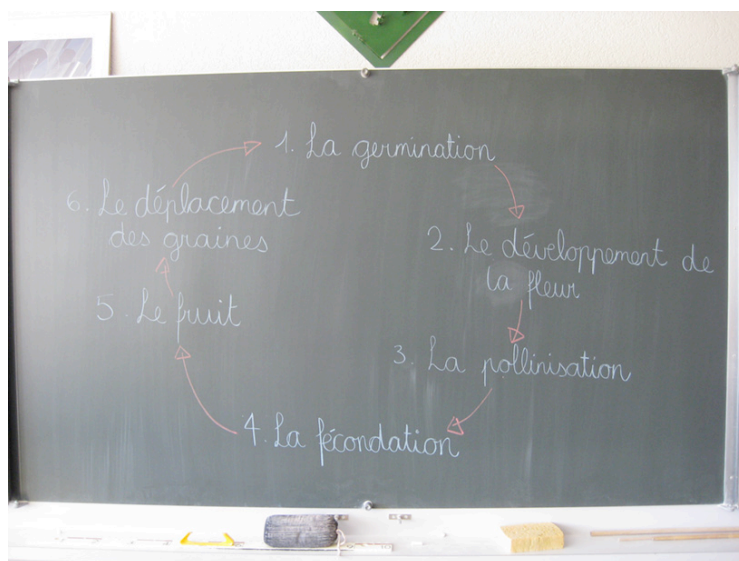 1. La germination
2. Le développement de
la fleur
3. La pollinisation
4. La fécondation
5. Le fruit
6. Le déplacement
des graines